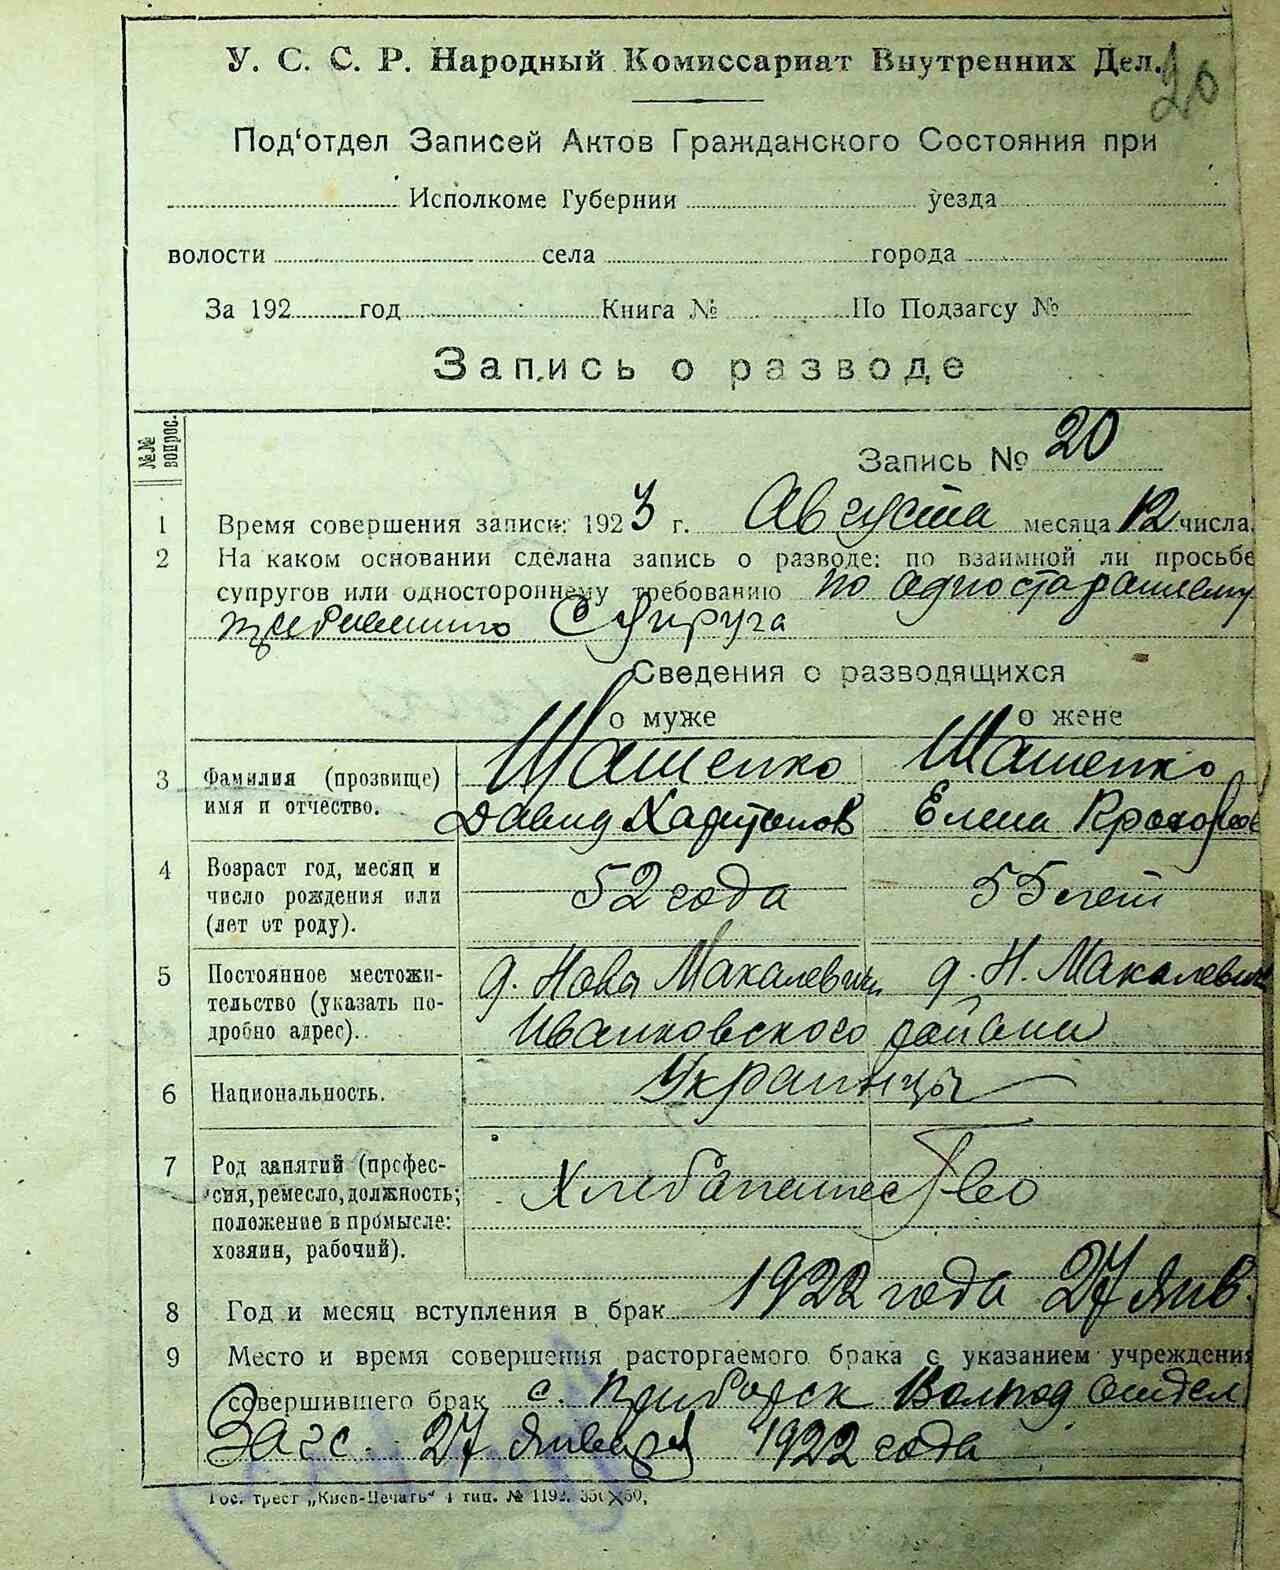 20
У. С. С. Р. Народный Комиссариат Внутренних Дел.
Под'отдел Записей Актов Гражданского Состояния при
Исполкоме Губернии уезда
волости села города
За 192 год Книга № По Подзагсу №
Запись о разводе
№№ вопрос.
Запись № 20
1 Время совершения записи: 1923 г. Августа месяца 12 числа.
2 На каком основании сделана запись о разводе: по взаимной ли просьбе
супругов или одностороннему требованию по одностарашему
Супруга
Сведения о разводящихся
о муже о жене
3 Фамилия (прозвище) Шашенко Шашенко
имя и отчество. Давид Харитонов Елена Прохоров
4 Возраст год, месяц и
число рождения или 52 года 55 лет
(лет от роду).
5 Постоянное местожи- д. Нова Макалевичи д. Н. Макалевич
тельство (указать по-
дробно адрес). Иванковского района
6 Национальность. Украинцы
7 Род занятий (профес-
сия, ремесло, должность; Хлебапашество
положение в промысле:
хозяин, рабочий).
8 Год и месяц вступления в брак 1922 года 27 Янв.
9 Место и время совершения расторгаемого брака с указанием учреждения
совершившего брак с. Приборск Волпод отдел
Загс. 27 Января 1922 года
Гос. трест „Киев-Печать" 1 тип. № 1192. 350×50,